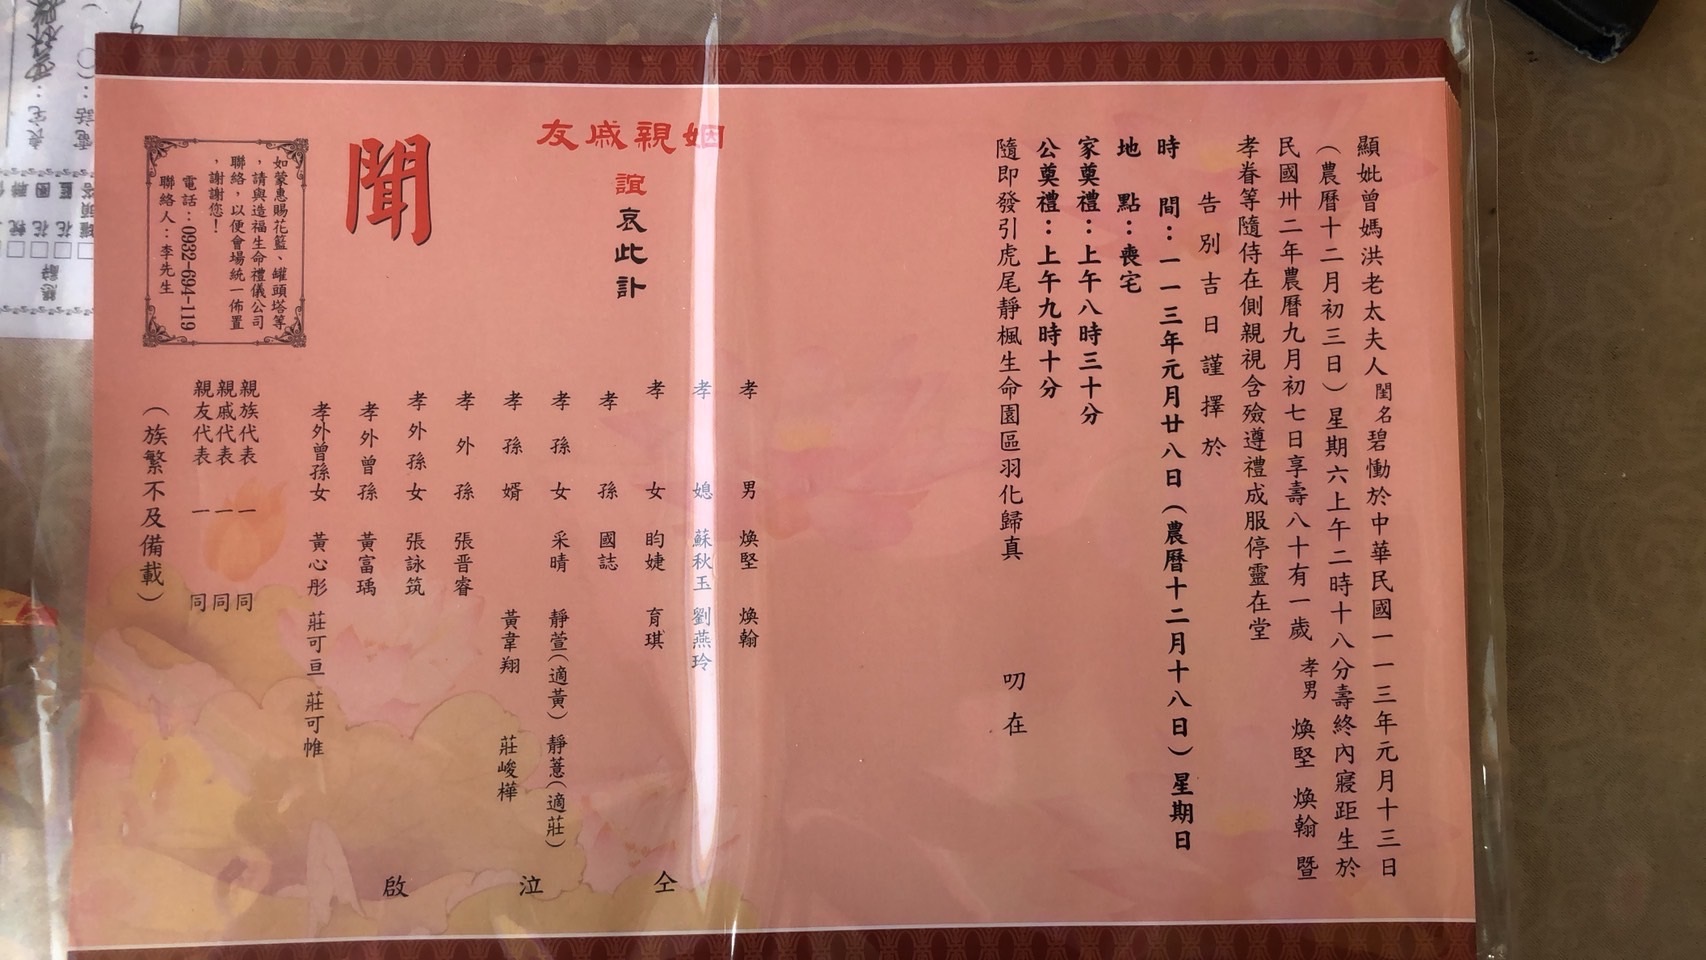 顯妣曾媽洪老太夫人閨名碧慟於中華民國一一三年元月十三日
（農曆十二月初三日）星期六上午二時十八分壽終內寢距生於
民國卅二年農曆九月初七日享壽八十有一歲 孝男 煥堅 煥翰 暨
孝眷等隨侍在側親視含殮遵禮成服停靈在堂
告別吉日謹擇於
時間：一一三年元月廿八日（農曆十二月十八日）星期日
地點：喪宅
家奠禮：上午八時三十分
公奠禮：上午九時十分
隨即發引虎尾靜楓生命園區羽化歸真
叨在
姻親戚友
誼哀此訃
聞
孝男 煥堅 煥翰
孝媳 蘇秋玉 劉燕玲
孝女 昀婕 育琪
孝孫 國誌
孝孫女 采晴 靜萱（適黃） 靜薏（適莊）
孝孫婿 黃韋翔 莊峻樺
孝外孫 張晋睿
孝外孫女 張詠筑
孝外曾孫 黃富瑀
孝外曾孫女 黃心彤 莊可亘 莊可帷
仝泣啟
親族代表一同
親戚代表一同
親友代表一同
（族繁不及備載）
如蒙惠賜花籃、罐頭塔等
，請與造福生命禮儀公司
聯絡，以便會場統一佈置
，謝謝您！
電話：0932-694-119
聯絡人：李先生
喪宅：
電話：